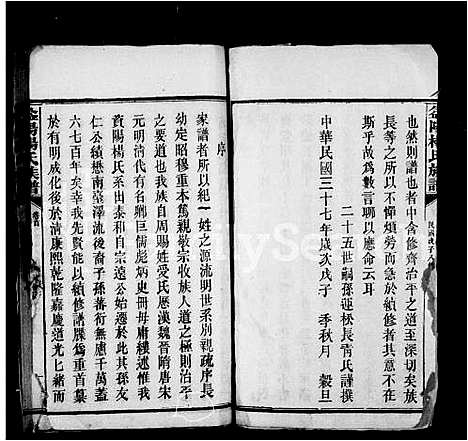 也然則譜也者中含修齊治平之道至深切矣族
長等之所以不憚煩勞而急於續修者其有見於
斯乎故為數言聊以應命云耳
二十五世嗣孫運棪長青氏謹撰
中華民國三十七年歲次戊子　季秋月　穀旦
序
家譜者所以紀一姓之源流明世系別親疏序長
幼定昭穆重本篤親敬宗收族人道之極則治平
之權輿也我族自周賜姓受氏歷漢魏晉隋唐宋
元明清代有名卿巨儒彪炳史冊毋庸縷述惟我
資陽楊氏系出泰和自宗遠公始遷於此其孫友
仁公績懋南臺澤流後裔子孫蕃衍無慮千萬蓋
六七百年矣幸我先賢能以續修譜牒為重首纂
於有明成化後於清康熙乾隆嘉慶道光上緒而